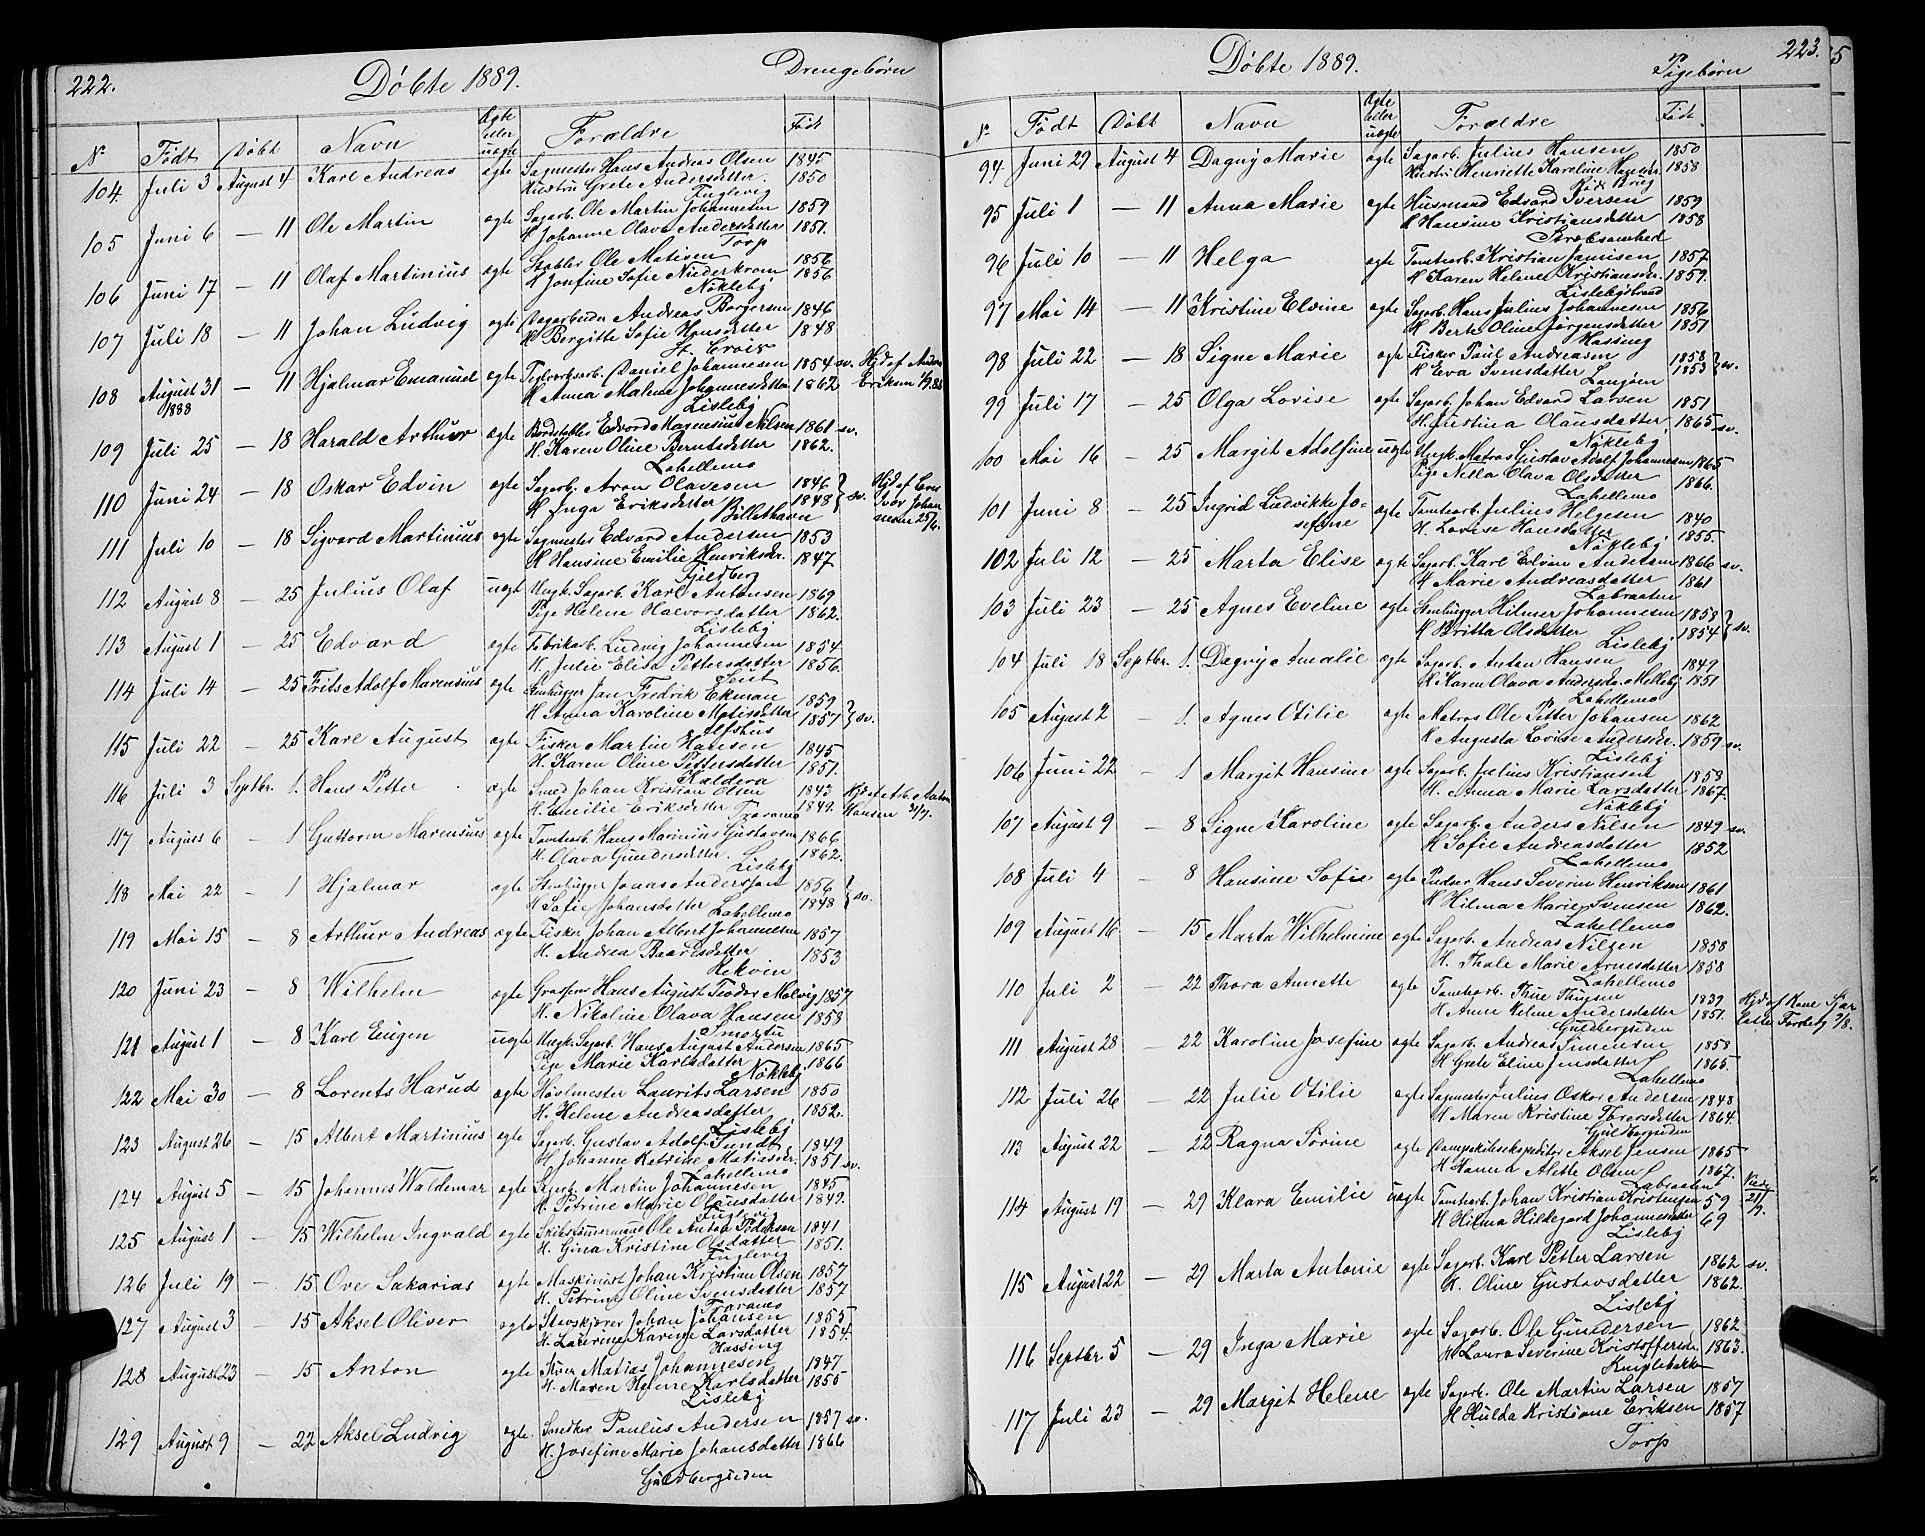 222.
Döbte 1889.
Drengebørn
No Födt Döbt Navn Ægte eller uægte Forældre Födt
104. Juli 3 August 4 Karl Andreas ægte Sagmester Hans Andreas Olsen 1845
Hustru Grete Andersdatter. 1850
Fuglevig
105 Juni 6 — 11 Ole Martin ægte Sagarb. Ole Martin Johannesen 1859
H Johanne Olava Andersdatter 1851.
Torp
106 Juni 17 — 11 Olaf Martinius ægte Stabler Ole Matisen 1856
H Josefine Sofie 1856
Nökleby
107 Juli 18 — 11 Johan Ludvig ægte Andreas Borgersen 1846
H Bergitte Sofie Hansdatter 1848
St. Croix
108 August 31 — 11 Hjalmar Emanuel ægte Teglverksarb. Daniel Johannesen 1854 sv. Hjd af Anders
1888 H Anna Malena Johannesdatter 1862 Eriksen 1/9.88
Lisleby
109 Juli 25 — 18 Harald Arthur ægte Bordstabler Edvard Magnus Nilsen 1861 sv.
H. Karen Oline Berntsdatter 1862.
Lahellemo
110 Juni 24 — 18 Oskar Edvin ægte Sagarb. Aron Olavesen 1846 } sv. Hjd af
H Inga Eriksdatter 1848
111 Juli 10 — 18 Sigvard Martinius ægte Sagmester Edvard Andersen 1853
H Hansine Emilie Henriksdr. 1847
Fjeldberg
112 August 8 — 25 Julius Olaf uægt Ungk. Sagarb. Karl Antonsen 1869
Pige Helene Halvorsdatter 1862.
Lisleby
113 August 1 25 Edvard ægte Fabrikarb. Ludvig Johannesen 1854
H. Julie Elisa Pettersdatter 1856.
114 Juli 14 — 25 Frits Adolf Marensius ægte Stenhugger Jan Fredrik Ekman 1859
H Anna Karoline Matisdatter 1857 } sv.
Alfshus
115 Juli 22 — 25 Karl August ægte Fisker Martin Hansen 1845
H. Karen Oline Pettersdatter 1851.
Kaldera
116 Juli 3 Septbr. 1. Hans Petter ægte Smed Johan Kristian Olsen 1843 Hjd af Arb. Anton
H. Emilie Eriksdatter 1849. Hansen
Traramo
117 August 6 — 1 Guttorm Marensius ægte Tomtearb. Hans Marinius Gustavsen 1866
H. Olava Gundersdatter. 1862.
Lisleby
118 Mai 22 — 1 Hjalmar ægte Stenhugger Jonas Anderssen 1856 } sv.
H Sofie Johansdatter 1848
Lahellemo
119 Mai 15 — 8 Arthur Andreas ægte Fisker Johan Albert Johannesen 1857
H. Andrea Baardsdatter 1853
Rekvin
120 Juni 23 — 8 Wilhelm ægte Hans August Teodor Molvig 1857
H. Nikoline Olava Hansen 1858
Smertu
121 August 1 8 Karl Eugen uægte Ungk. Sagarb. Hans August Andersen 1865
Pige Marie Karlsdatter 1866
Nökleby
122 Mai 30 — 8 Lorents Harud ægte Hövlmester Laurits Larsen 1850
H. Helene Andreasdatter 1852.
Lisleby
123 August 26 — 15 Albert Martinius ægte Sagarb. Gustav Adolf Sundt 1849
H Johanne Katrine Matiasdr. 1851 sv.
Lahellemo
124 August 5 — 15 Johannes Waldemar ægte Sagarb. Martin Johannesen 1845
H. Petrine Marie Olausdatter 1849.
Fuglevig
125 August 1 15 Wilhelm Ingvald ægte Skibstömmermand Ole Anton Pedersen 1841
H. Gina Kristine Olsdatter 1851.
Fuglevig
126 Juli 19 — 15 Ove Sakarias ægte Maskinist Johan Kristian Olsen 1857
H. Petrine Oline Svensdatter 1857
Traramo
127 August 3 — 15 Aksel Oliver ægte Stavskjærer Johan Johansen 1853
H. Laurine Karine Larsdatter 1854.
Hassing
128 August 23 — 15 Anton ægte Matias Johannesen 1847
H. Maren Helene Karlsdatter 1855
Lisleby
129 August 9 — 22 Aksel Ludvig ægte. Snedker Paulus Andersen 1857 sv.
H. Josefine Marie Johansdatter 1866
Guldbergseden
223.
Döbte 1889.
Pigebørn
No Födt Döbt Navn Ægte eller uægte Forældre Födt
94 Juni 29 August 4 Dagny Marie ægte Sagarb. Julius Hansen 1850
Hustru Henriette Karoline Hansdr. 1858
95 Juli 1 — 11 Anna Marie ægte Husmand Edvard Iversen 1859
H Hansine Kristiansdatter 1858
96 Juli 10 — 11 Helga ægte Tomtearb. Kristian Jansen 1857
H Karen Helene Kristiansdr. 1859.
Lislebystrand
97 Mai 14 — 11 Kristine Elvine ægte Sagarb. Hans Julius Johannesen 1856
H Berte Oline Jørgensdatter 1851
Hassing
98 Juli 22 — 18 Signe Marie ægte Fisker Paul Andreasen 1858 } sv.
H Eva Svensdatter 1853
Langöen
99 Juli 17 — 25 Olga Lovise ægte Sagarb. Johan Edvard Larsen 1851
H. Justina Olausdatter 1865 sv.
Nökleby
100 Mai 16 — 25 Margit Adolfine uægte Ungk. Matros Gustav Adolf Johannesen 1865
Pige Nella Olava Olsdatter 1866.
Lahellemo
101 Juni 8 25 Ingrid Ludvikke Jo- ægte Tomtearb. Julius Helgesen 1840
sefine H. Lovise Hansdatter 1855.
Nökleby
102 Juli 12 — 25 Marta Elise ægte Sagarb. Karl Edvin Andersen 1866 sv.
H Marie Andreasdatter 1861
Labraaten
103 Juli 23 — 25 Agnes Eveline ægte Stenhugger Hilmer Johannesen 1858 } sv.
H Britta Olsdatter 1854
Lisleby
104 Juli 18 Septbr. 1. Dagny Amalie ægte Sagarb. Anton Hansen 1849
H. Karen Olava Andersdr. Melleby 1851
Lahellemo
105 August 2 — 1. Agnes Otilie ægte Matros Ole Petter Johansen 1862
H Augusta Lovise Andersdr. 1859 sv.
Lisleby
106 Juni 22 — 1 Margit Hansine ægte Sagarb. Julius Kristiansen 1858
H. Anna Marie Larsdatter 1867.
Nökleby
107 August 9 — 8 Signe Karoline ægte Sagarb. Anders Nilsen 1849 sv.
H Sofie Andreasdatter 1852
Lahellemo
108 Juli 4 — 8 Hansine Sofie ægte Pudser Hans Severin Henriksen 1861
H Hilma Marie Svensen 1862.
Lahellemo
109 August 16 — 15 Marta Wilhelmine ægte Sagarb. Andreas Nilsen 1858
H. Thale Marie Arnesdatter 1858
Lahellemo
110 Juli 2 — 22 Thora Annette ægte Tomtearb. Thue Thuesen 1839 Hjd af Kone
H Anne Helene Andersdatter 1851.
Guldbergseden
111 August 28 — 22 Karoline Josefine ægte Sagarb. Andreas Simensen 1858
H Grete Eline Jensdatter 1865.
Lahellemo
112 Juli 26 — 22 Julie Otilie ægte Sagmester Julius Oskar Andersen 1848
H Maren Kristine Thoresdatter 1864.
Guldbergseden
113 August 22 22 Ragna Sörine ægte Dampskibsekspeditör Aksel Jensen 1865
H Hanna Alette Olsen 1867.
Labraaten
114 August 19 — 29 Klara Emilie uægte Tomtearb. Johan Kristian Kristensen 59 Viede
H Hilma Hildegard Johannesdatter 69 21/9.
Lisleby
115 August 22 — 29 Marta Antonie ægte Sagarb. Karl Petter Larsen 1862 sv.
H. Oline Gustavsdatter 1862.
Lisleby
116 Septbr. 5 — 29 Inga Marie ægte Sagarb. Ole Gundersen 1862
H Laura Severine Kristoffersdr. 1863.
Kniplebakken
117 Juli 23 — 29 Margit Helene ægte Sagarb. Ole Martin Larsen 1857
H Hulda Kristiane Eriksen 1857
Torp